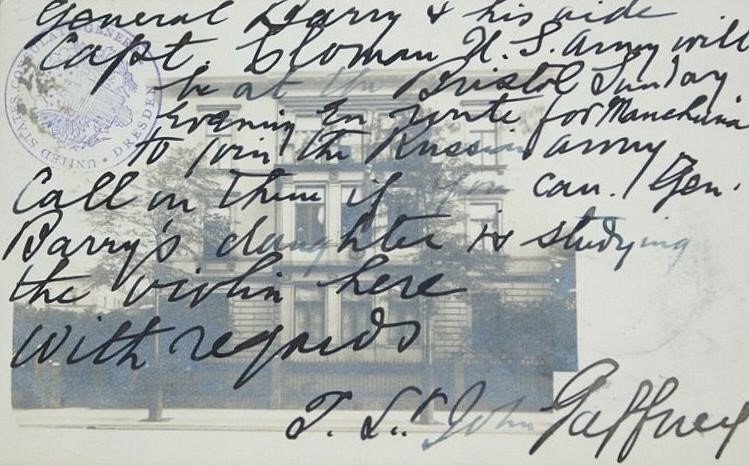 General Barry & his aide
Capt. Cloman U.S. Army will
be at the Bristol Sunday
evening en route for Manchuria
to join the Russian army.
Call on them if you can. Gen.
Barry's daughter is studying
the violin here
With regards
T. St. John Gaffney
UNITED STATES CONSULATE GENERAL
DRESDEN